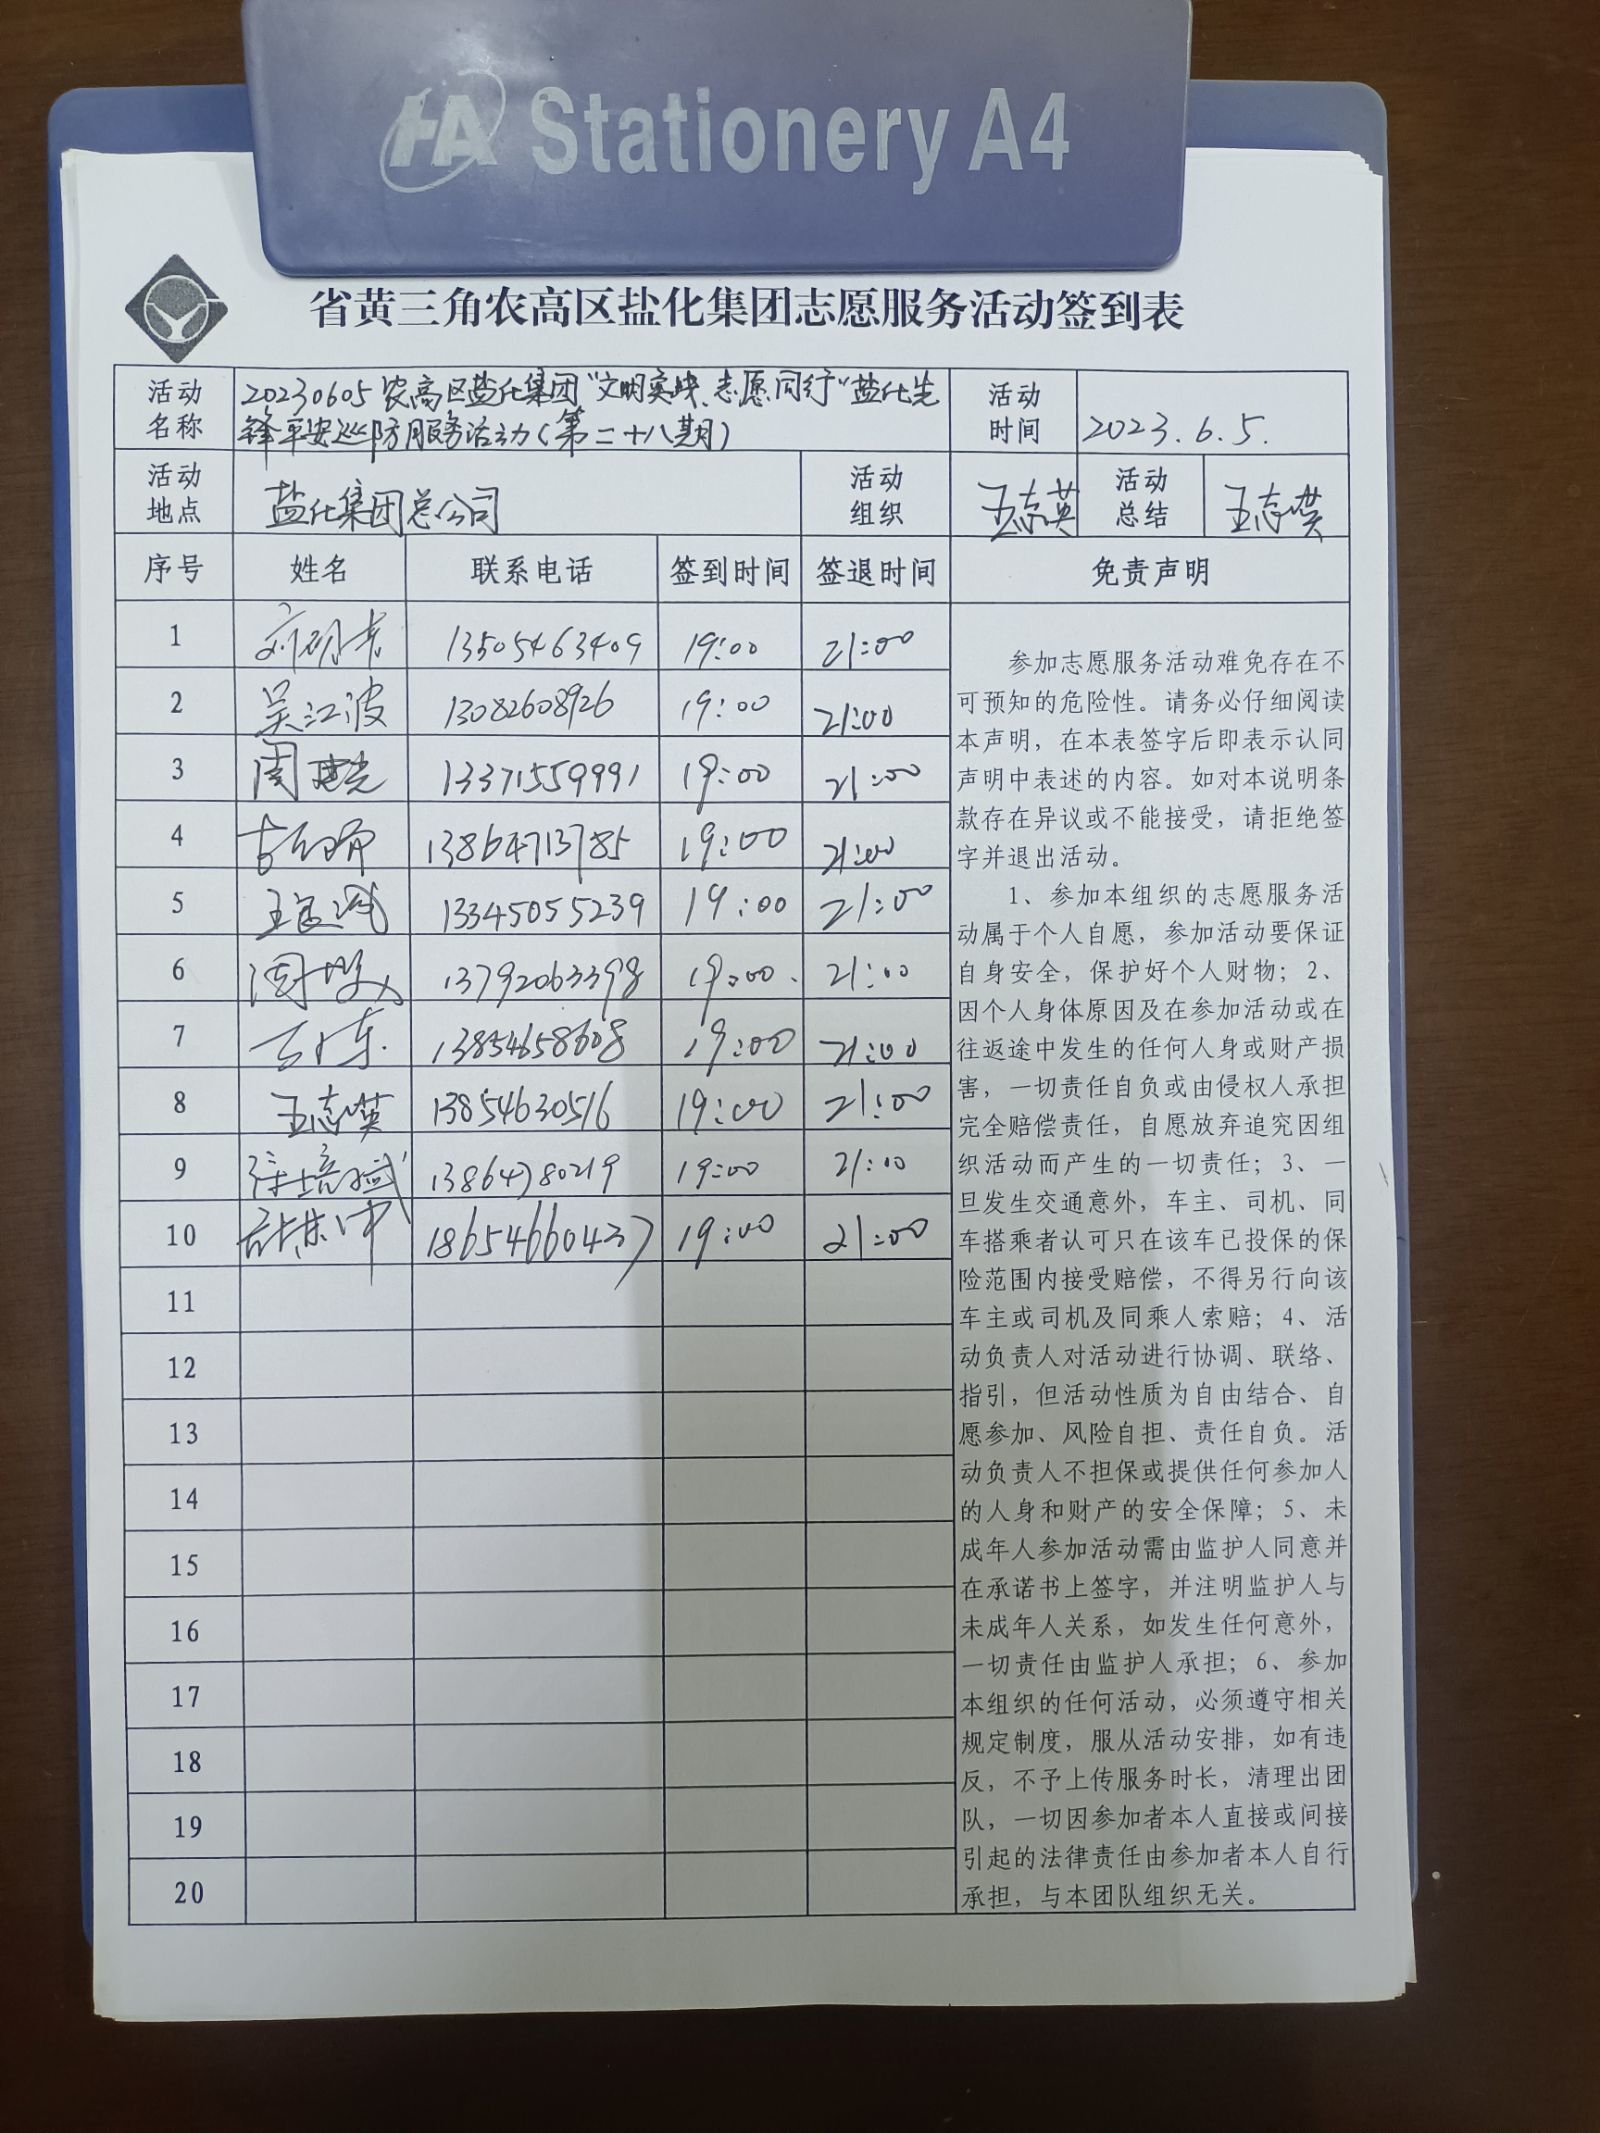 HA Stationery A4
省黄三角农高区盐化集团志愿服务活动签到表
活动名称 20230605农高区盐化集团“文明实践、志愿同行”盐化先
锋平安巡防服务活动(第二十八期) 活动时间 2023.6.5.
活动地点 盐化集团总公司 活动组织 王志英 活动总结 王志英
序号 姓名 联系电话 签到时间 签退时间 免责声明
1 13505463409 19:00 21:00
2 吴江波 13082608926 19:00 21:00
3 13371559991 19:00 21:00
4 13864713785 19:00 21:00
5 13345055239 19:00 21:00
6 13792063398 19:00 21:00
7 13854658608 19:00 21:00
8 王志英 13854630516 19:00 21:00
9 13864780219 19:00 21:00
10 18654660437 19:00 21:00
11
12
13
14
15
16
17
18
19
20
参加志愿服务活动难免存在不
可预知的危险性。请务必仔细阅读
本声明，在本表签字后即表示认同
声明中表述的内容。如对本说明条
款存在异议或不能接受，请拒绝签
字并退出活动。
1、参加本组织的志愿服务活
动属于个人自愿，参加活动要保证
自身安全，保护好个人财物；2、
因个人身体原因及在参加活动或在
往返途中发生的任何人身或财产损
害，一切责任自负或由侵权人承担
完全赔偿责任，自愿放弃追究因组
织活动而产生的一切责任；3、一
旦发生交通意外，车主、司机、同
车搭乘者认可只在该车已投保的保
险范围内接受赔偿，不得另行向该
车主或司机及同乘人索赔；4、活
动负责人对活动进行协调、联络、
指引，但活动性质为自由结合、自
愿参加、风险自担、责任自负。活
动负责人不担保或提供任何参加人
的人身和财产的安全保障；5、未
成年人参加活动需由监护人同意并
在承诺书上签字，并注明监护人与
未成年人关系，如发生任何意外，
一切责任由监护人承担；6、参加
本组织的任何活动，必须遵守相关
规定制度，服从活动安排，如有违
反，不予上传服务时长，清理出团
队，一切因参加者本人直接或间接
引起的法律责任由参加者本人自行
承担，与本团队组织无关。